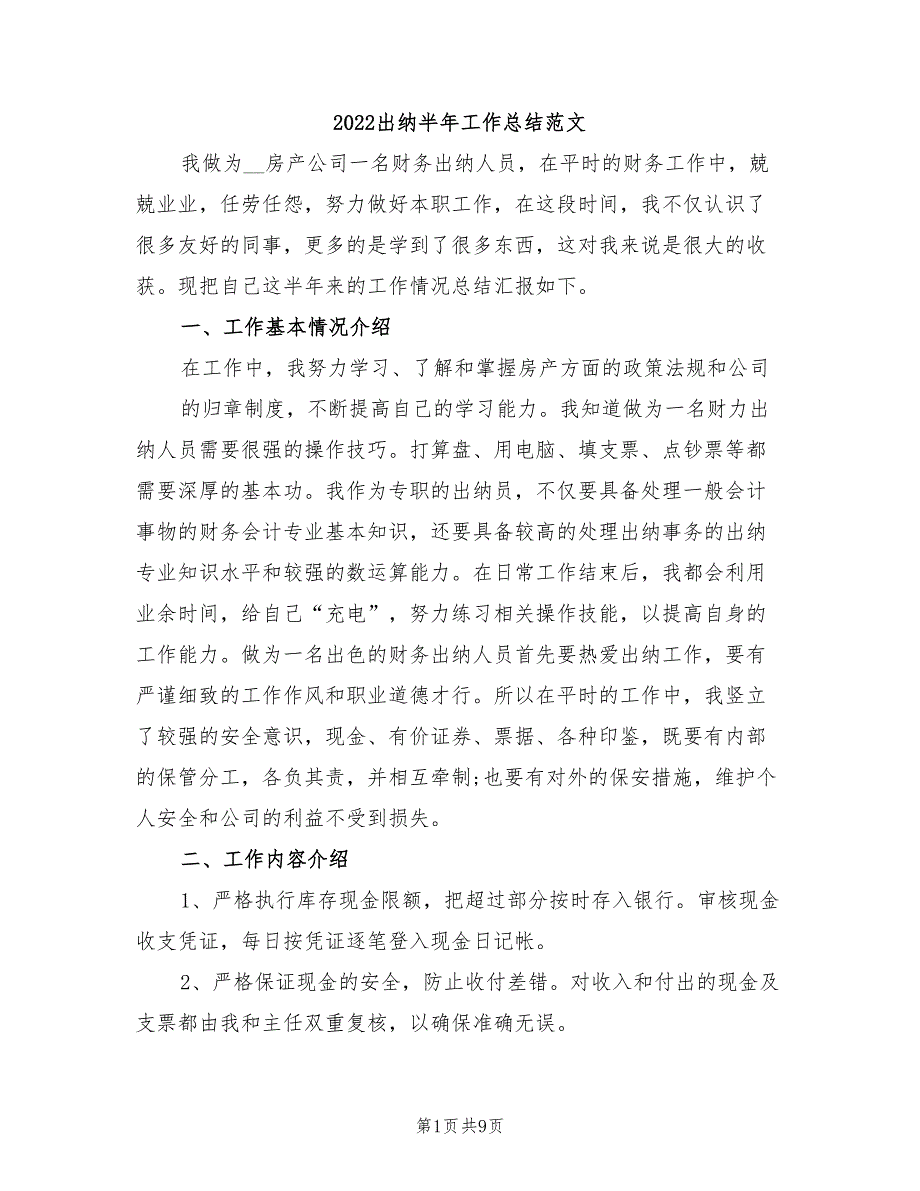 2022出纳半年工作总结范文
我做为__房产公司一名财务出纳人员，在平时的财务工作中，兢
兢业业，任劳任怨，努力做好本职工作，在这段时间，我不仅认识了
很多友好的同事，更多的是学到了很多东西，这对我来说是很大的收
获。现把自己这半年来的工作情况总结汇报如下。
一、工作基本情况介绍
在工作中，我努力学习、了解和掌握房产方面的政策法规和公司
的归章制度，不断提高自己的学习能力。我知道做为一名财力出
纳人员需要很强的操作技巧。打算盘、用电脑、填支票、点钞票等都
需要深厚的基本功。我作为专职的出纳员，不仅要具备处理一般会计
事物的财务会计专业基本知识，还要具备较高的处理出纳事务的出纳
专业知识水平和较强的数运算能力。在日常工作结束后，我都会利用
业余时间，给自己“充电”，努力练习相关操作技能，以提高自身的
工作能力。做为一名出色的财务出纳人员首先要热爱出纳工作，要有
严谨细致的工作作风和职业道德才行。所以在平时的工作中，我竖立
了较强的安全意识，现金、有价证券、票据、各种印鉴，既要有内部
的保管分工，各负其责，并相互牵制;也要有对外的保安措施，维护个
人安全和公司的利益不受到损失。
二、工作内容介绍
1、严格执行库存现金限额，把超过部分按时存入银行。审核现金
收支凭证，每日按凭证逐笔登入现金日记帐。
2、严格保证现金的安全，防止收付差错。对收入和付出的现金及
支票都由我和主任双重复核，以确保准确无误。
第1页 共9页